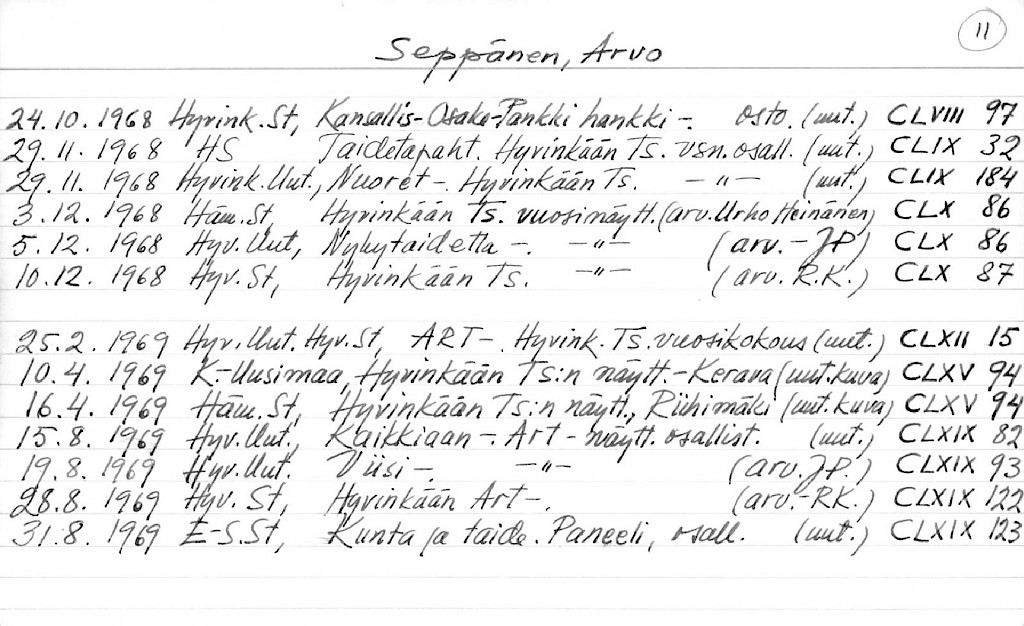 11
Seppänen, Arvo
24.10.1968 Hyvink.St, Kansallis-Osake-Pankki hankki-. osto. (uut.) CLVIII 97
29.11.1968 HS Taidetapaht. Hyvinkään Ts. vsn. osall. (uut.) CLIX 32
29.11.1968 Hyvink.Uut., Nuoret-. Hyvinkään Ts. -"- (uut.) CLIX 184
3.12.1968 Häm.St, Hyvinkään Ts. vuosinäytt. (arv.Urho Heinänen) CLX 86
5.12.1968 Hyv.Uut, Nykytaidetta -. -"- (arv.-JP) CLX 86
10.12.1968 Hyv.St, Hyvinkään Ts. -"- (arv. R.K.) CLX 87
25.2.1969 Hyv.Uut. Hyv.St, ART-. Hyvink. Ts.vuosikokous (uut.) CLXII 15
10.4.1969 K.-Uusimaa, Hyvinkään Ts:n näytt.-Kerava (uut.kuva) CLXV 94
16.4.1969 Häm.St, Hyvinkään Ts:n näytt., Riihimäki (uut.kuva) CLXV 94
15.8.1969 Hyv.Uut., Kaikkiaan-. Art-näytt. osallist. (uut.) CLXIX 82
19.8.1969 Hyv.Uut. Viisi-. -"- (arv.JP.) CLXIX 93
28.8.1969 Hyv.St, Hyvinkään Art-. (arv.-RK.) CLXIX 122
31.8.1969 E-S.St, Kunta ja taide. Paneeli, osall. (uut.) CLXIX 123